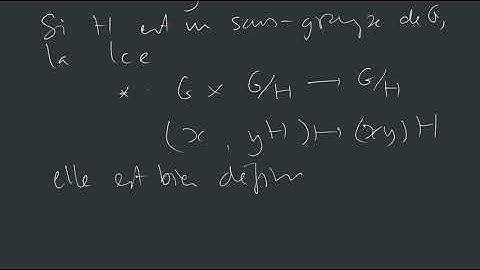 Si H est un sous-groupe de G,
la lce
* · G × G/H → G/H
(x , yH) ↦ (xy)H
elle est bien défini